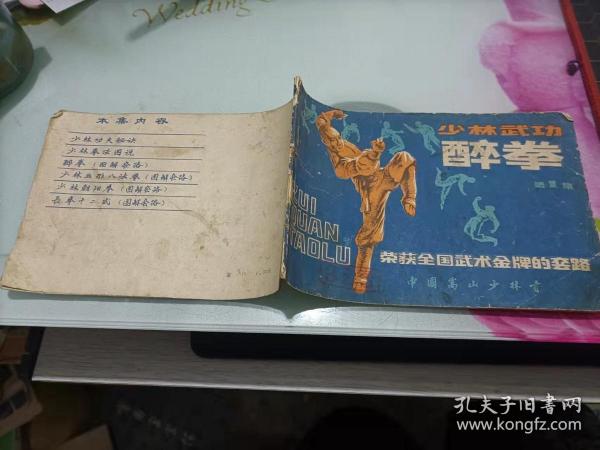 Wedding
本集内容
少林功夫秘诀
少林拳法图说
醉拳(图解套路)
少林五形八法拳(图解套路)
少林朝阳拳(图解套路)
长拳十二式(图解套路)
少林武功
醉拳
ZUI
QUAN
TAOLU
荣获全国武术金牌的套路
中国嵩山少林寺
孔夫子旧书网
www.kongfz.com